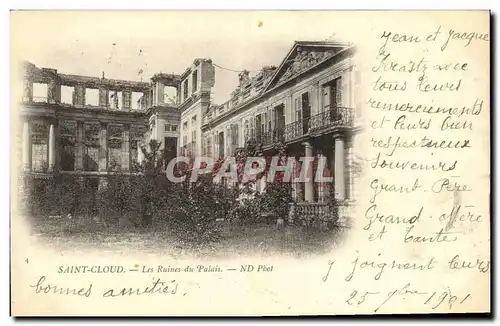 Jean et Jacques
Krast avec
tous leurs
remerciements
et leurs bien
respectueux
Souvenirs
Grand-Père
Grand-Mère
et Tante
y joignent leurs
bonnes amitiés.
25 9bre 1901
CPHRIL.com
SAINT-CLOUD. — Les Ruines du Palais. — ND Phot